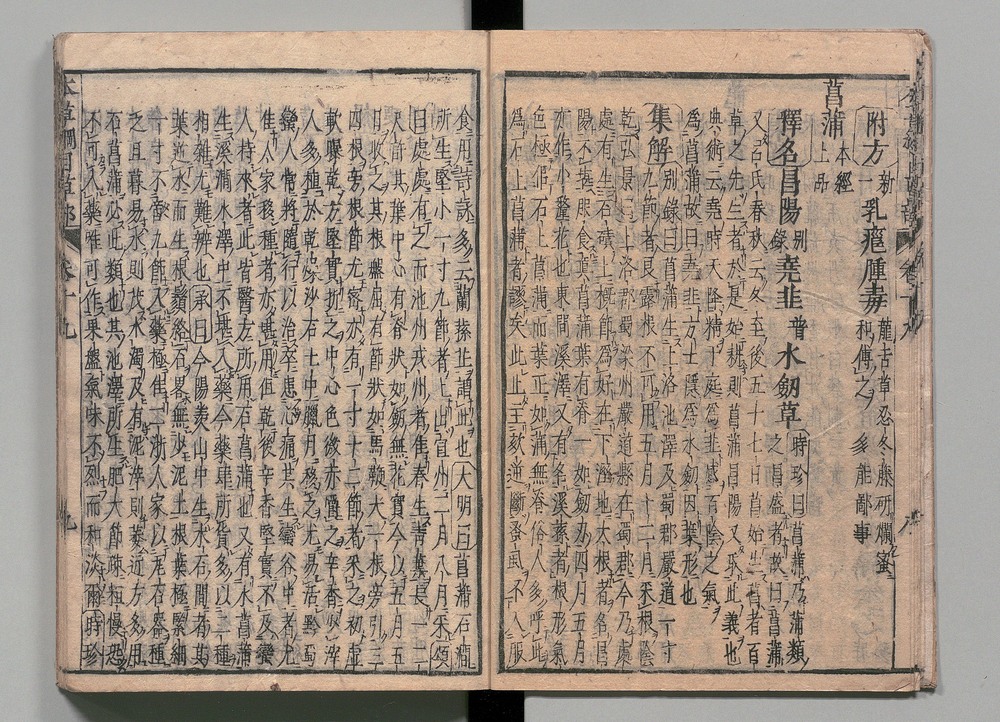 附方 新一 乳癰腫毒 龍古草忍冬藤研爛蜜和傅之 多能鄙事
菖蒲 本經上品
釋名 昌陽 別錄 堯韭 普 水劒草 時珍曰菖蒲乃蒲類之昌盛者故曰菖蒲
又呂氏春秋云冬至後五十七日菖始生菖者百
草之先生者於是始耕則菖蒲昌陽又取此義也
典術云堯時天降精于庭爲韭感百陰之氣
爲菖蒲故曰堯韭方士隱爲水劒因葉形也
集解 別錄曰菖蒲生上洛池澤及蜀郡嚴道一寸
九節者良露根不可用五月十二月采根陰
乾弘景曰上洛郡屬梁州嚴道縣在蜀郡今乃處
處有生石磧上槪節爲好在下溼地大根者名昌
陽不堪服食眞菖蒲葉有脊一如劒刃四月五月
亦作小釐花也東間溪澤又有名溪蓀者根形氣
色極似石上菖蒲而葉正如蒲無脊俗人多呼此
爲石上菖蒲者謬矣此止主欬逆斷蚤虱不入服
食用詩詠多云蘭蓀正謂此也大明曰菖蒲石澗
所生堅小一寸九節者上出宣州二月八月采頌
曰處處有之而池州戎州者佳春生青葉長一二
尺許其葉中心有脊狀如劒無花實今以五月五
日收之其根盤屈有節狀如馬鞭大一根旁引三
四根旁根節尤密亦有一寸十二節者采之初虛
軟曝乾方堅實折之中心色微赤嚼之辛香少滓
人多植於乾燥沙石土中臘月移之尤易活黔蜀
蠻人常將隨行以治卒患心痛其生蠻谷中者尤
佳人家移種者亦堪用但乾後辛香堅實不及蠻
人持來者此皆醫方所用石菖蒲也又有水菖蒲
生溪澗水澤中不堪入藥今藥肆所貨多以二種
相雜尤難辨也承曰今陽羨山中生水石間者其
葉逆水而生根鬚絡石略無少泥土根葉極緊細
一寸不啻九節入藥極佳二浙人家以瓦石器種
之旦暮易水則茂水濁及有泥滓則萎近方多用
石菖蒲必此類也其池澤所生肥大節疎粗慢恐
不可入藥唯可作果盤氣味不烈而和淡爾時珍